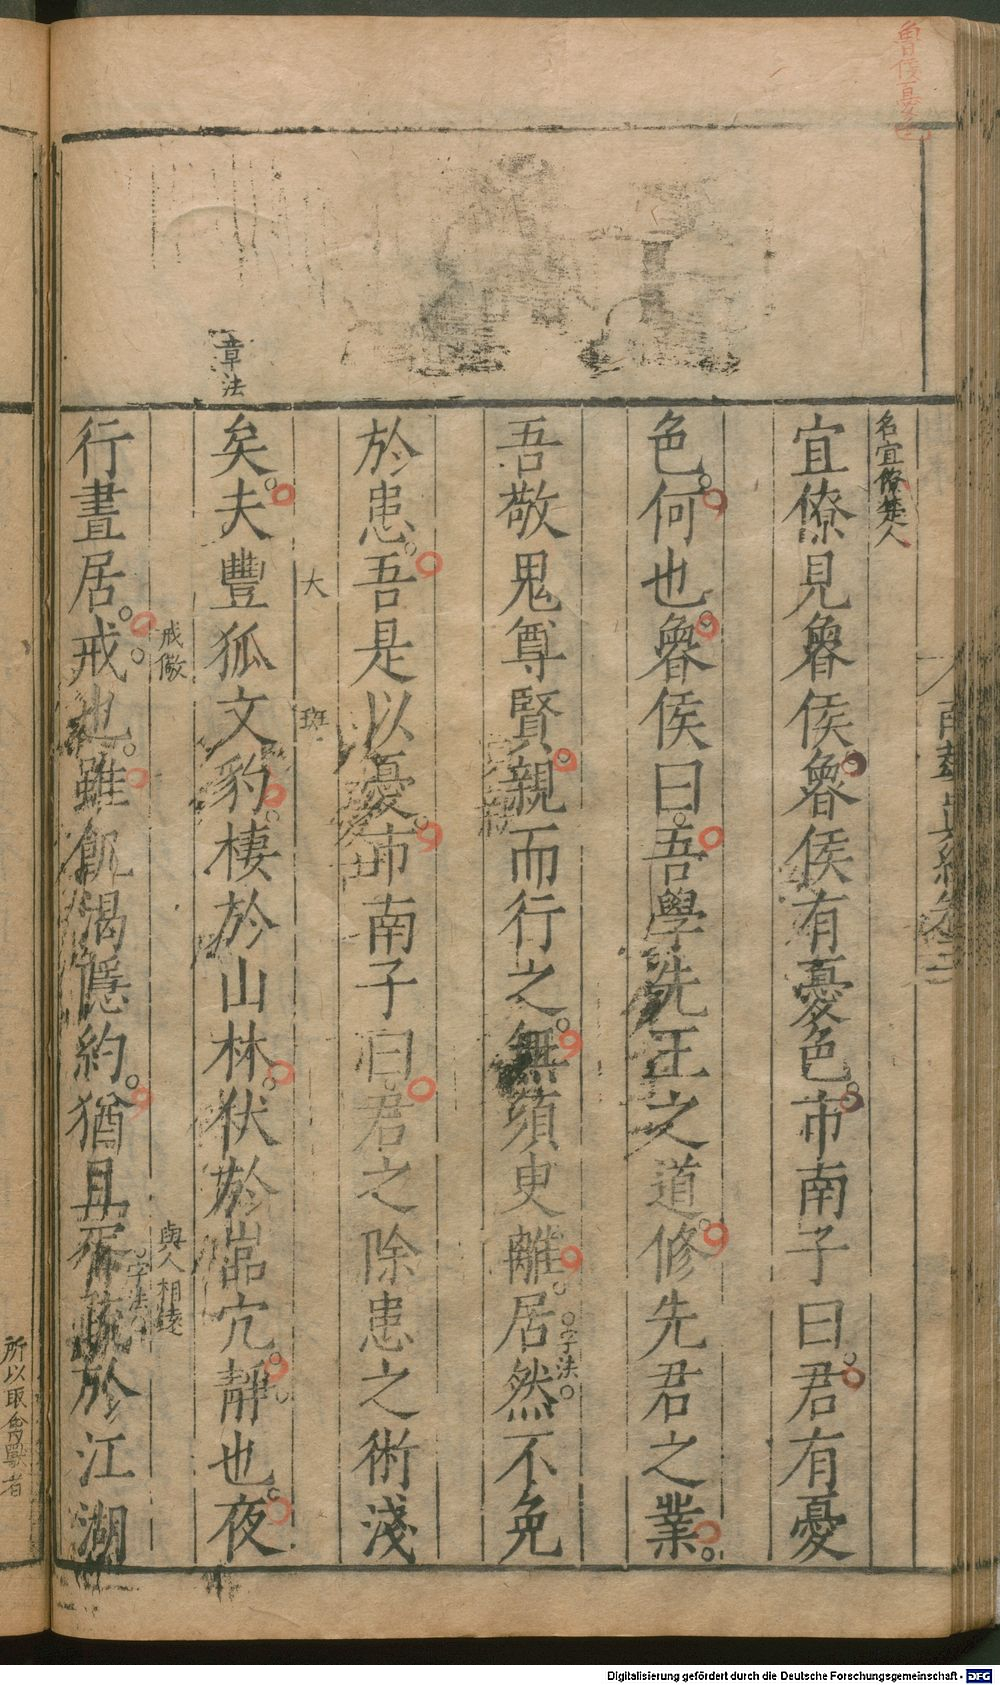 魯侯憂色
名宜僚楚人
宜僚見魯侯魯侯有憂色市南子曰君有憂
色何也魯侯曰吾學先王之道修先君之業
吾敬鬼尊賢親而行之無須臾離居然不免
字法
於患吾是以憂市南子曰君之除患之術淺
大
班
章法
矣夫豐狐文豹棲於山林伏於嵓穴靜也夜
戒儆
與人相遠
行晝居戒也雖飢渴隱約猶且胥疏於江湖
字法
所以取禽獸者
南華真經卷
Digitalisierung gefördert durch die Deutsche Forschungsgemeinschaft - DFG